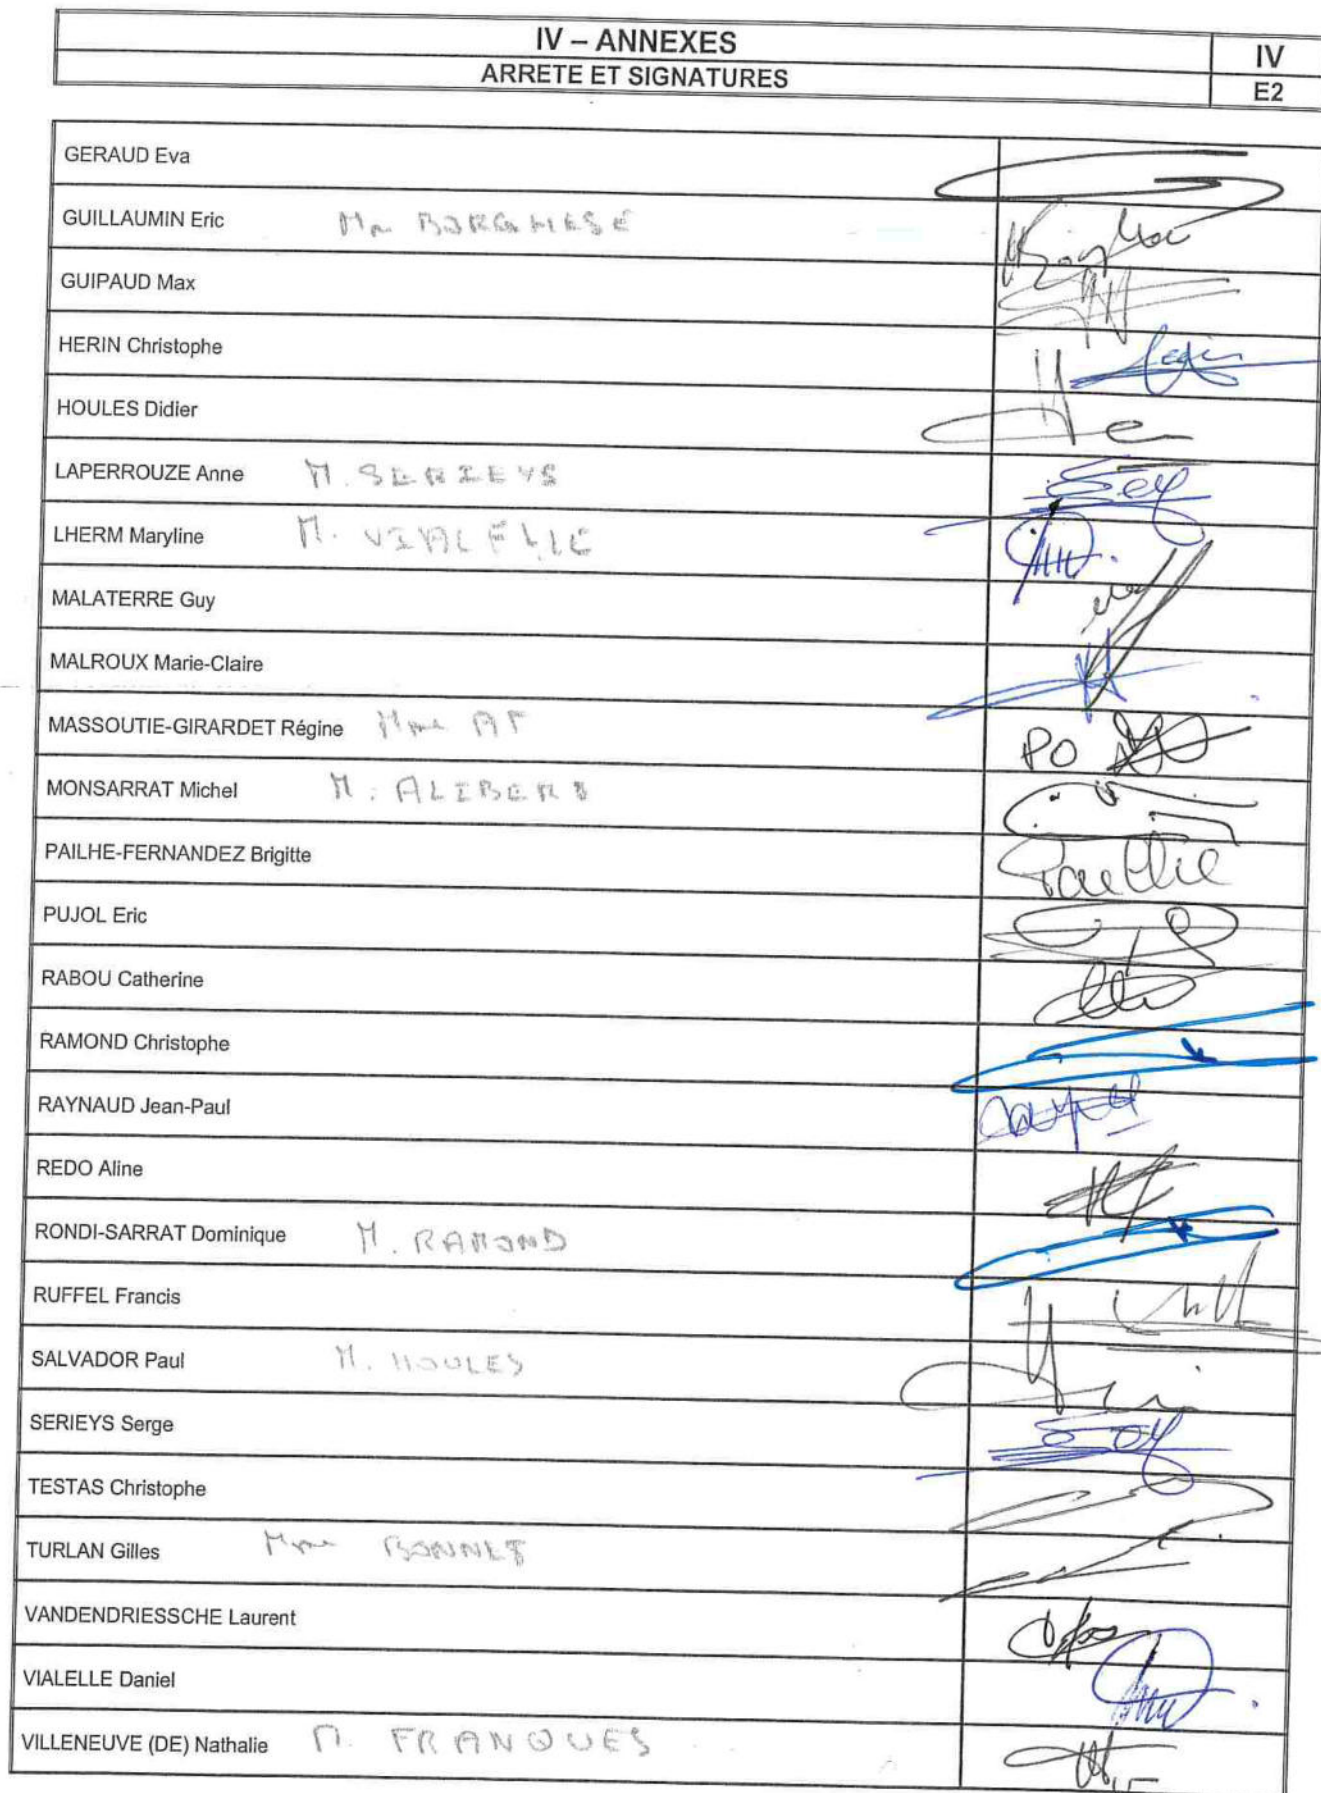 IV – ANNEXES
IV
ARRETE ET SIGNATURES
E2
GERAUD Eva
GUILLAUMIN Eric Mr BORGHESE
GUIPAUD Max
HERIN Christophe
HOULES Didier
LAPERROUZE Anne M. SERIEYS
LHERM Maryline M. VIALELLE
MALATERRE Guy
MALROUX Marie-Claire
MASSOUTIE-GIRARDET Régine Mme
PO
MONSARRAT Michel M. ALIBERT
PAILHE-FERNANDEZ Brigitte
PUJOL Eric
RABOU Catherine
RAMOND Christophe
RAYNAUD Jean-Paul
REDO Aline
RONDI-SARRAT Dominique M. RAMOND
RUFFEL Francis
SALVADOR Paul M. HOULES
SERIEYS Serge
TESTAS Christophe
TURLAN Gilles Mme BONNET
VANDENDRIESSCHE Laurent
VIALELLE Daniel
VILLENEUVE (DE) Nathalie M. FRANQUES